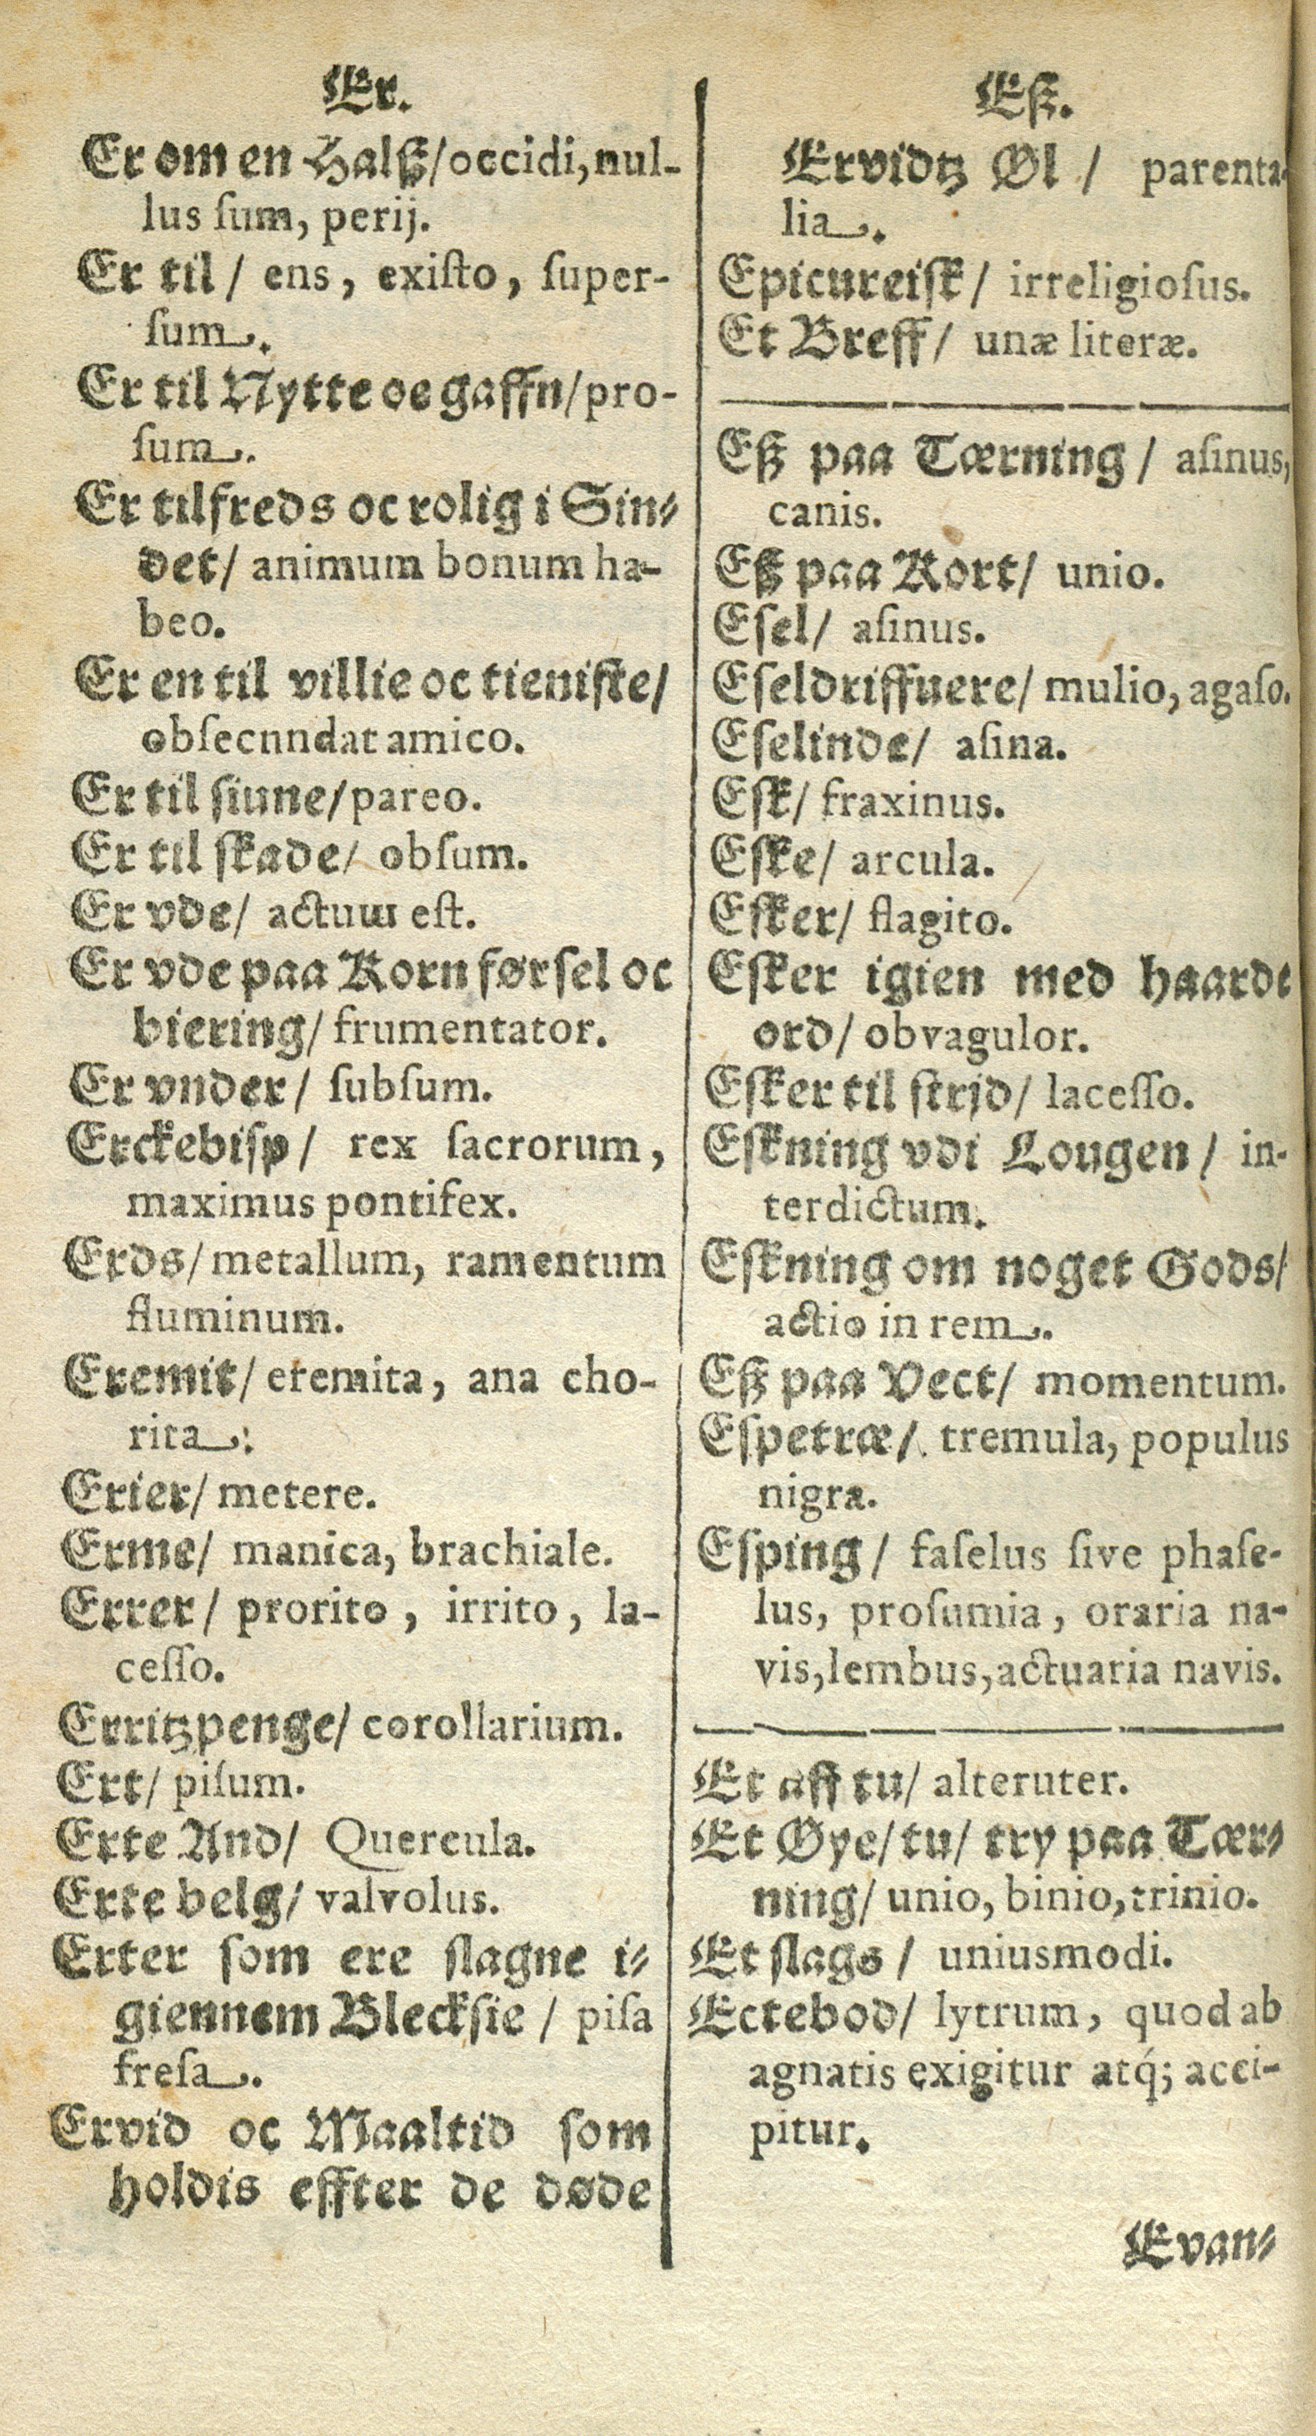 Er.
Er om en Halsz/occidi, nul-
lus ſum, perij.
Er til/ ens, exiſto, ſuper-
ſum.
Er til Nytte oe gaffn/pro-
ſum.
Er tilfreds oc rolig i Sin-
det/ animum bonum ha-
beo.
Er en til villie oc tieniſte/
obſecnndat amico.
Er til ſiune/pareo.
Er til ſkade/ obſum.
Er vde/ actuɯ eſt.
Er vde paa Korn førſel oc
biering/ frumentator.
Er vnder/ ſubſum.
Erckebiſp/ rex ſacrorum,
maximus pontifex.
Erds/metallum, ramentum
fluminum.
Eremit/ eremita, ana cho-
rita.
Erier/ metere.
Erme/ manica, brachiale.
Errer/ prorito, irrito, la-
ceſſo.
Erritzpenge/ corollarium.
Ert/ piſum.
Erte And/ Quercula.
Erte belg/ valvolus.
Erter ſom ere ſlagne i-
giennem Bleckſie/ piſa
freſa.
Ervid oc Maaltid ſom
holdis effter de døde
Eſz.
Ervidtz Øl/ parenta-
lia.
Epicureiſk/ irreligioſus.
Et Breff/ unæ literæ.
Eſz paa Tærning/ aſinus,
canis.
Eſz paa Kort/ unio.
Eſel/ aſinus.
Eſeldriffuere/ mulio, agaſo.
Eſelinde/ aſina.
Eſk/ fraxinus.
Eſke/ arcula.
Eſker/ flagito.
Eſker igien med haardt
ord/ obvagulor.
Eſker til ſtrjd/ laceſſo.
Eſkning vdi Lougen/ in-
terdictum.
Eſkning om noget Gods/
actio in rem.
Eſz paa Vect/ momentum.
Eſpetræ/ tremula, populus
nigra.
Eſping/ faſelus ſive phaſe-
lus, proſumia, oraria na-
vis, lembus, actuaria navis.
Et aff tu/ alteruter.
Et Øye/tu/ try paa Tær-
ning/ unio, binio, trinio.
Et ſlags/ uniusmodi.
Ectebod/ lytrum, quod ab
agnatis exigitur atq́; acci-
pitur.
Evan-